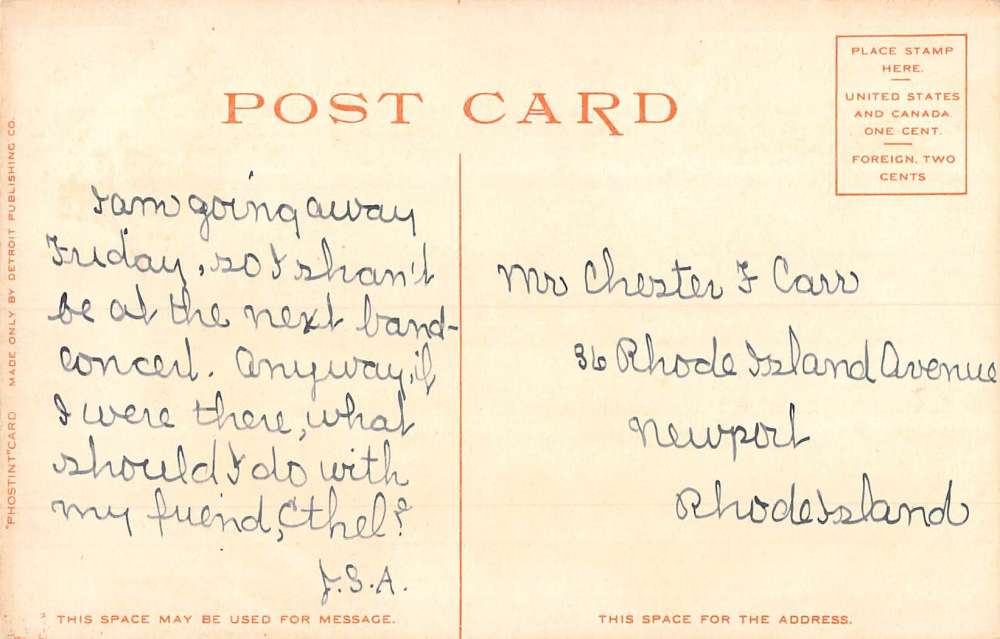 POST CARD
PLACE STAMP
HERE.
UNITED STATES
AND CANADA
ONE CENT.
FOREIGN, TWO
CENTS
"PHOSTINT" CARD MADE ONLY BY DETROIT PUBLISHING CO.
I am going away
Friday, so I shan't
be at the next band-
concert. Anyway, if
I were there, what
should I do with
my friend, Ethel?
J.S.A.
Mr Chester F Carr
36 Rhode Island Avenue
Newport
Rhode Island
THIS SPACE MAY BE USED FOR MESSAGE.
THIS SPACE FOR THE ADDRESS.